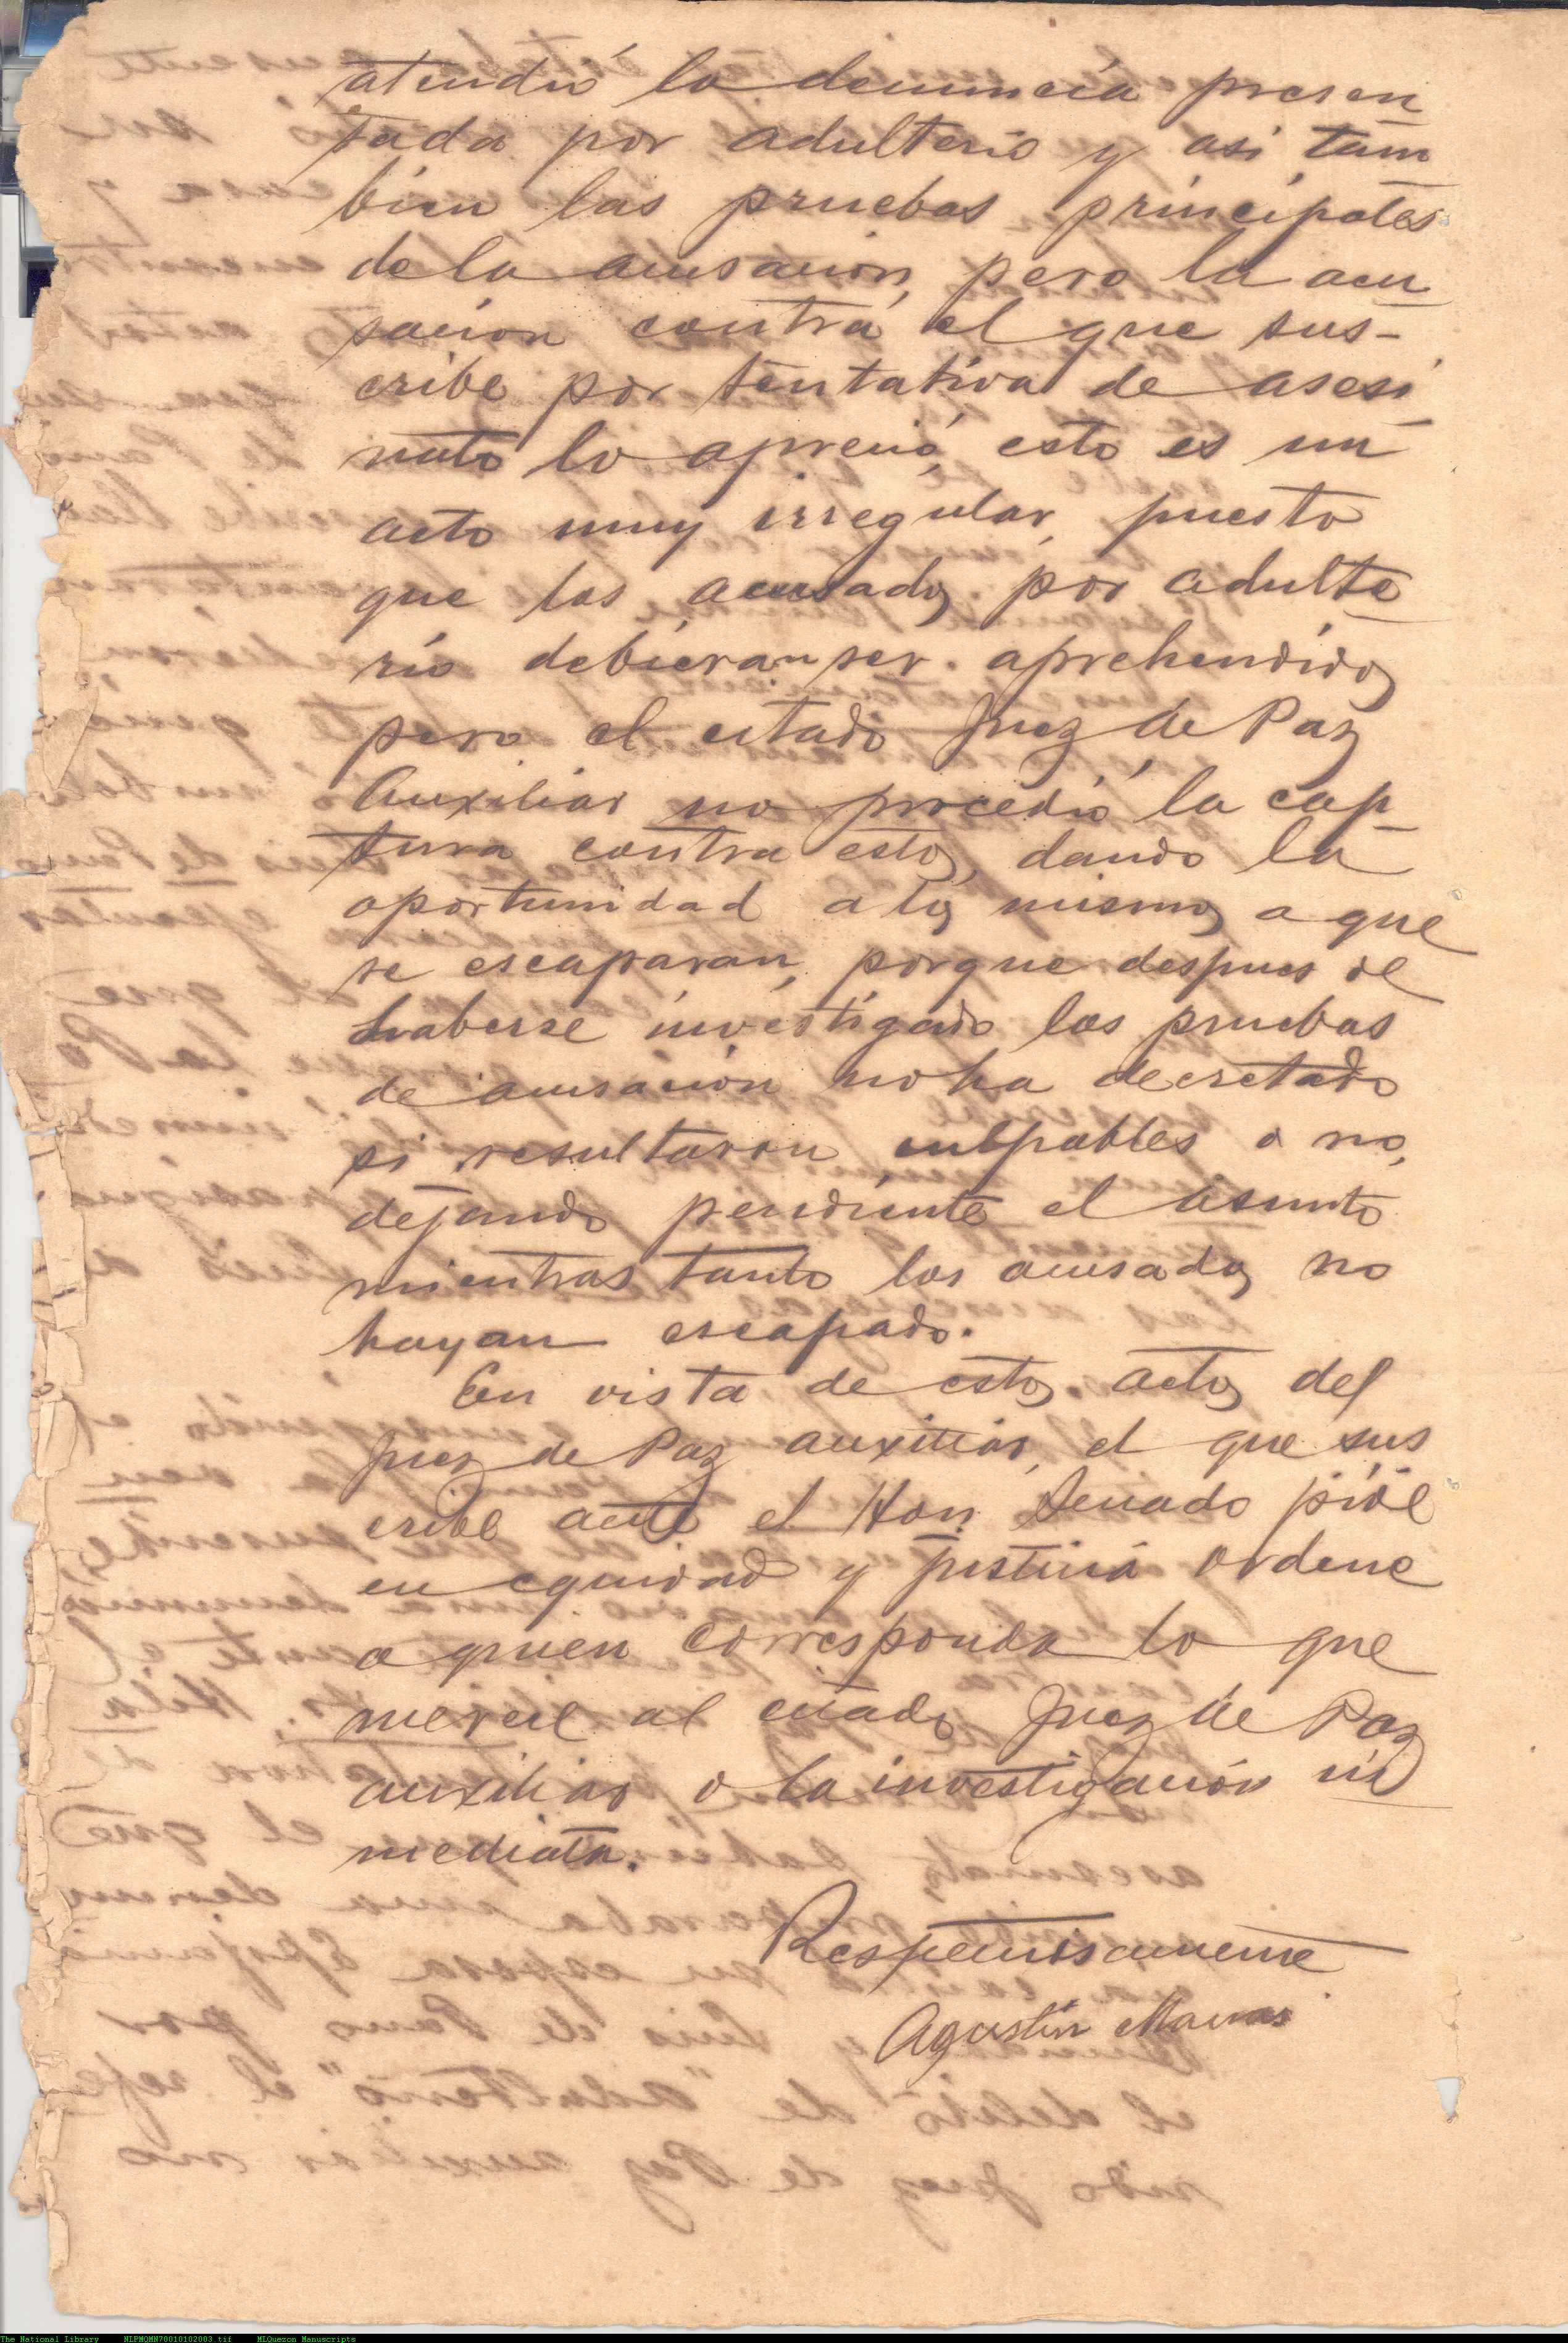 atendió la denuncia presen
tada por adulterio y asi tam
bien las pruebas principales
de la acusación, pero la acu
sación contra el que sus-
cribe por tentativa de asesi
nato lo apreció, esto es un
acto muy irregular, puesto
que los acusados por adulte
rio debieran ser aprehendidos
pero el citado Juez de Paz
Auxiliar no procedió la cap
tura contra estos, dando la
oportunidad a los mismos a que
se escaparan, porque despues de
haberse investigado las pruebas
de acusación no ha decretado
si resultaron culpables o no,
dejando pendiente el asunto
mientras tanto los acusados no
hayan escapado.
En vista de estos actos del
Juez de Paz auxiliar, el que sus
cribe ante el Hon. Senado pide
en equidad y justicia ordene
a quien corresponda lo que
merece al citado Juez de Paz
auxiliar o la investigación in
mediata.
Respetuosamente
Agustin
The National Library NLPMQMN70010102003.tif MLQuezon Manuscripts